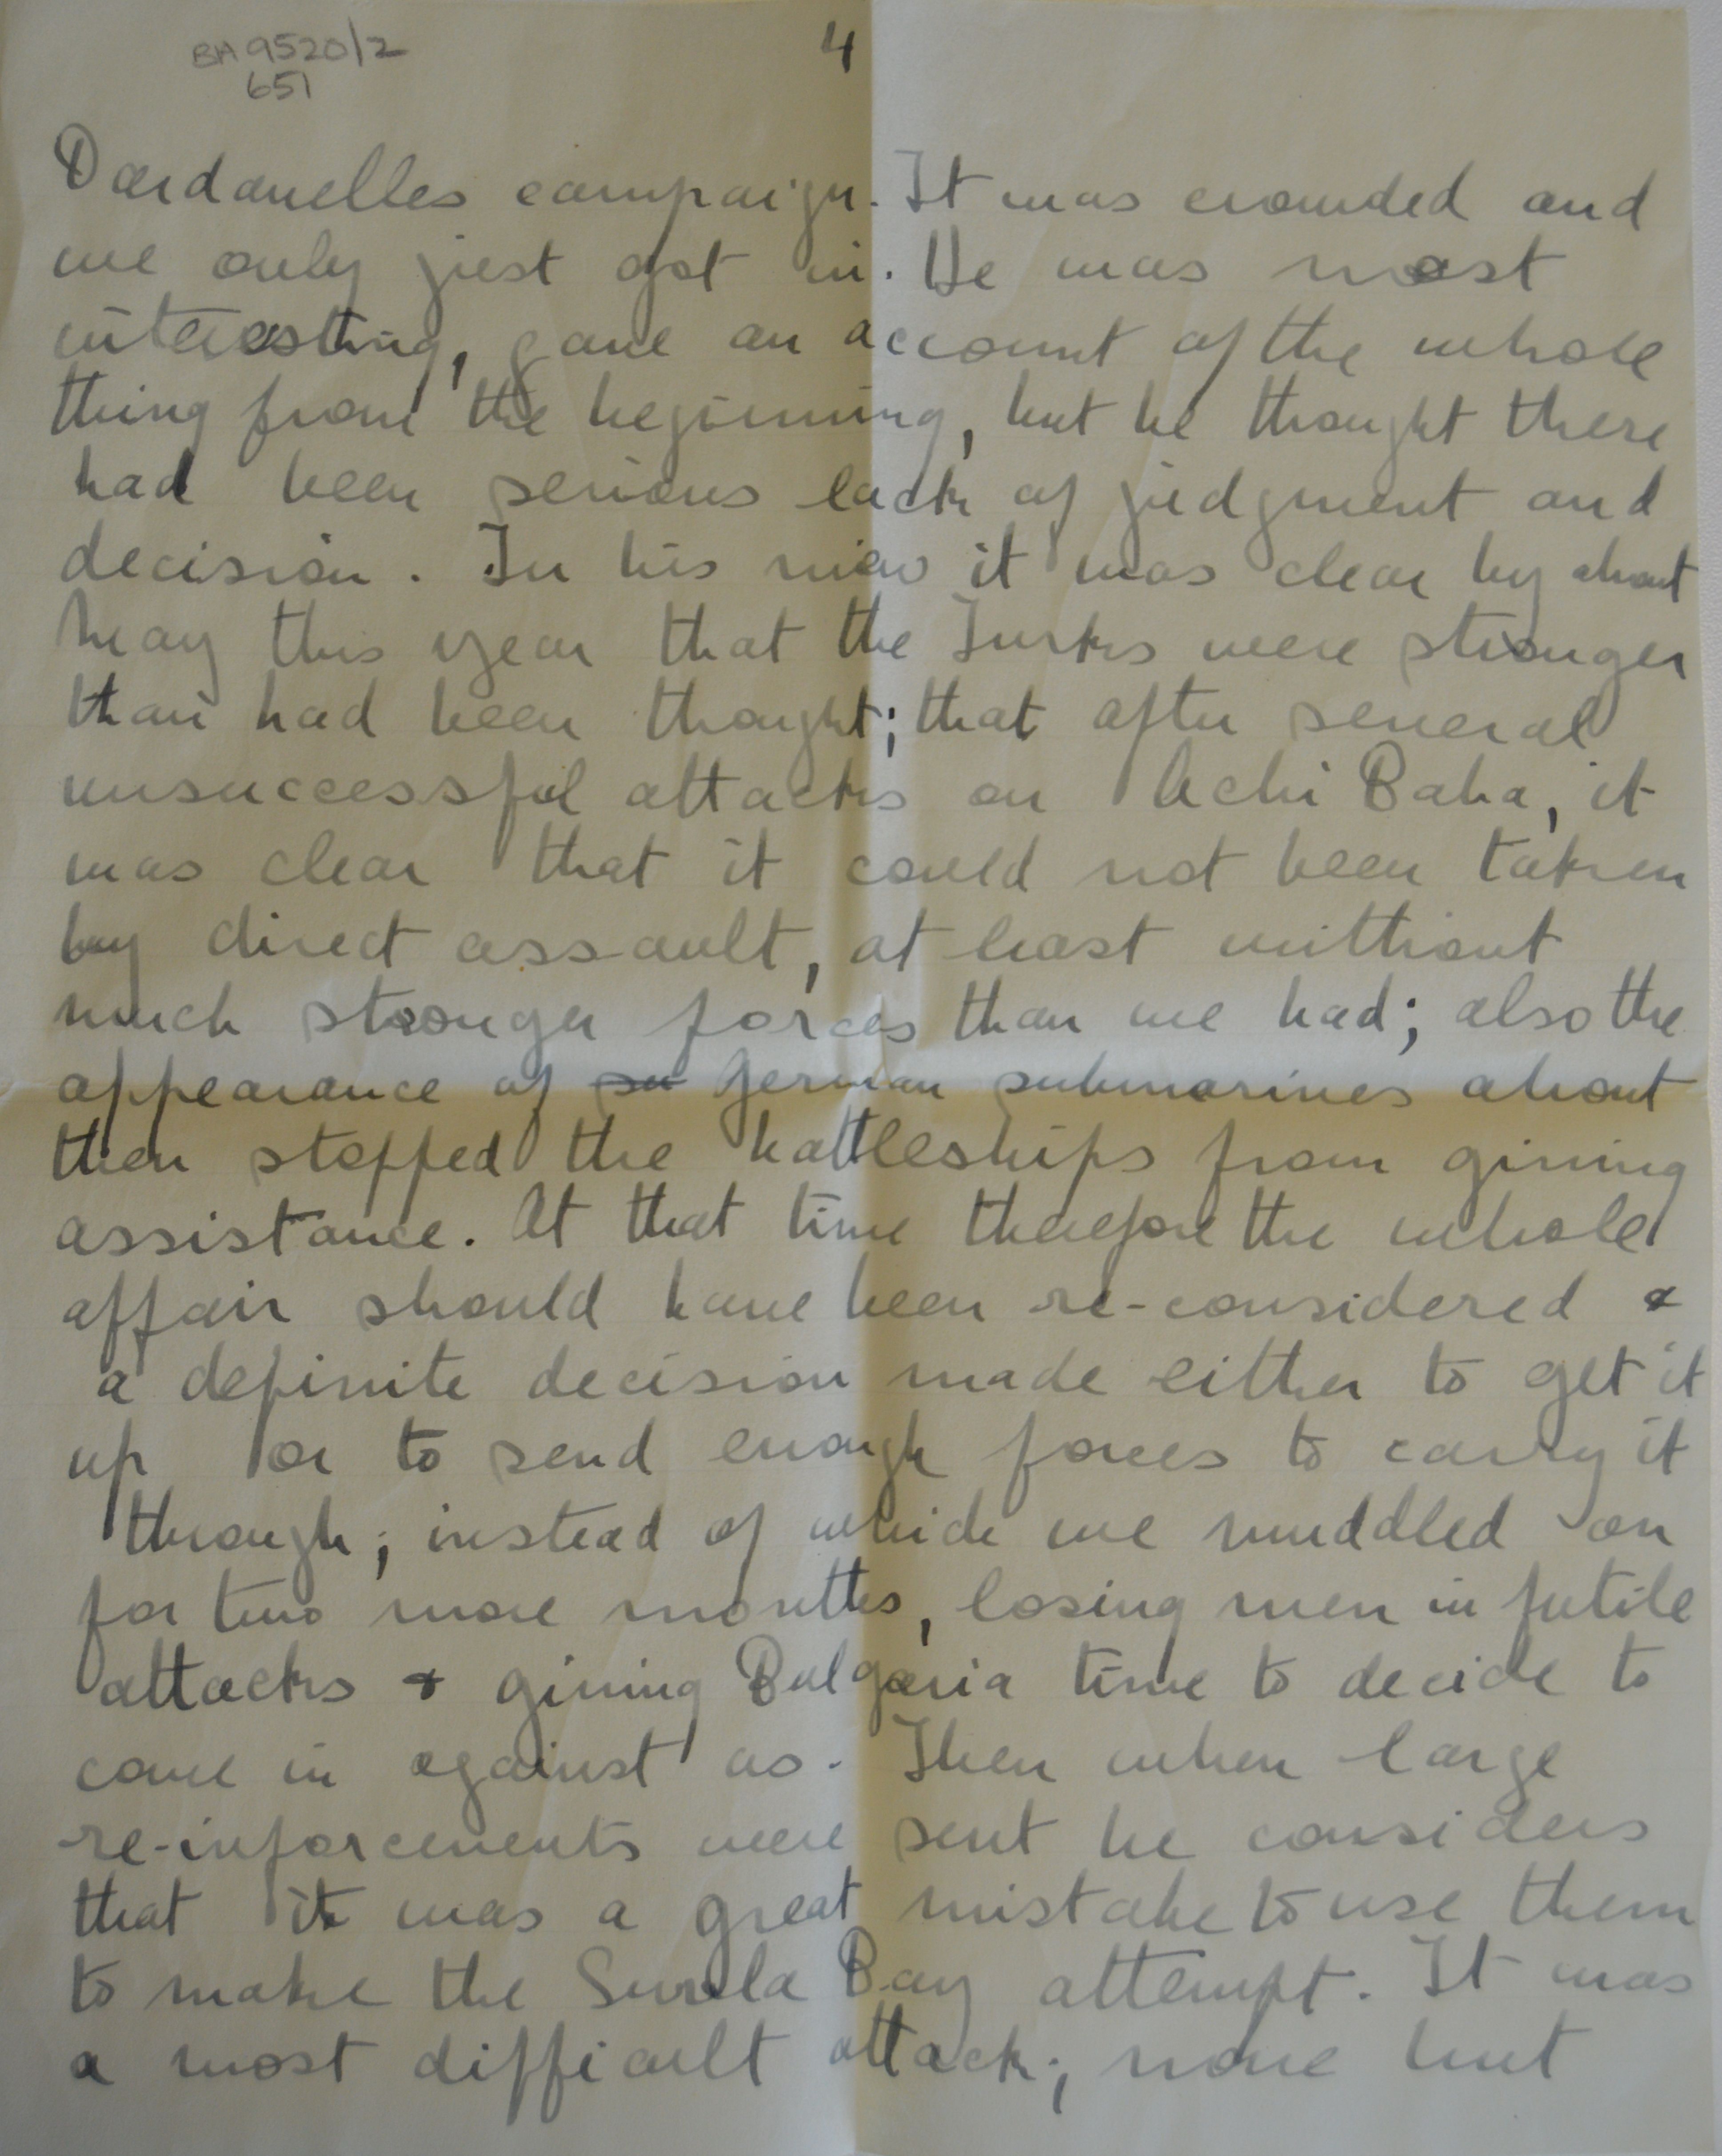 BA 9520/2
651
4
Dardanelles campaign. It was crowded and
we only just got in. He was most
interesting, gave an account of the whole
thing from the beginning, but he thought there
had been serious lack of judgment and
decision. In his view it was clear by about
May this year that the Turks were stronger
than had been thought; that after several
unsuccessful attacks on Achi Baba, it
was clear that it could not been taken
by direct assault, at least without
much stronger forces than we had; also the
appearance of su German submarines about
then stopped the battleships from giving
assistance. At that time therefore the whole
affair should have been re-considered &
a definite decision made either to get it
up or to send enough forces to carry it
through; instead of which we muddled on
for two more months, losing men in futile
attacks & giving Bulgaria time to decide to
come in against us. Then when large
re-inforcements were sent he considers
that it was a great mistake to use them
to make the Suvla Bay attempt. It was
a most difficult attack; none but